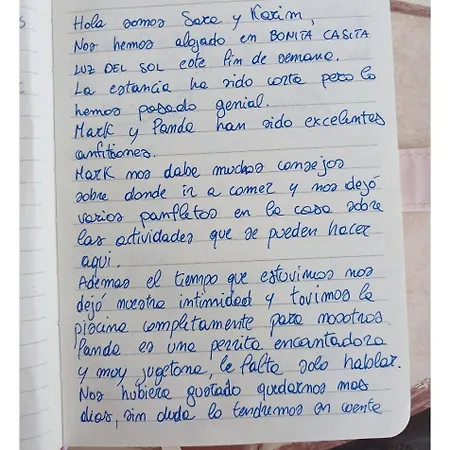 Hola somos Sara y Karim,
Nos hemos alojado en BONITA CASITA
LUZ DEL SOL este fin de semana.
La estancia ha sido corta pero lo
hemos pasado genial.
Mark y Panda han sido excelentes
anfitriones.
Mark nos dabe muchos consejos
sobre donde ir a comer y nos dejó
varios panfletos en la casa sobre
las actividades que se pueden hacer
aqui.
Ademas el tiempo que estuvimos nos
dejó nuestra intimidad y tuvimos la
piscina completamente para nosotros.
Panda es una perrita encantadora
y muy jugetona, le falta solo hablar.
Nos hubiera gustado quedarnos mas
dias, sin duda lo tendremos en cuenta